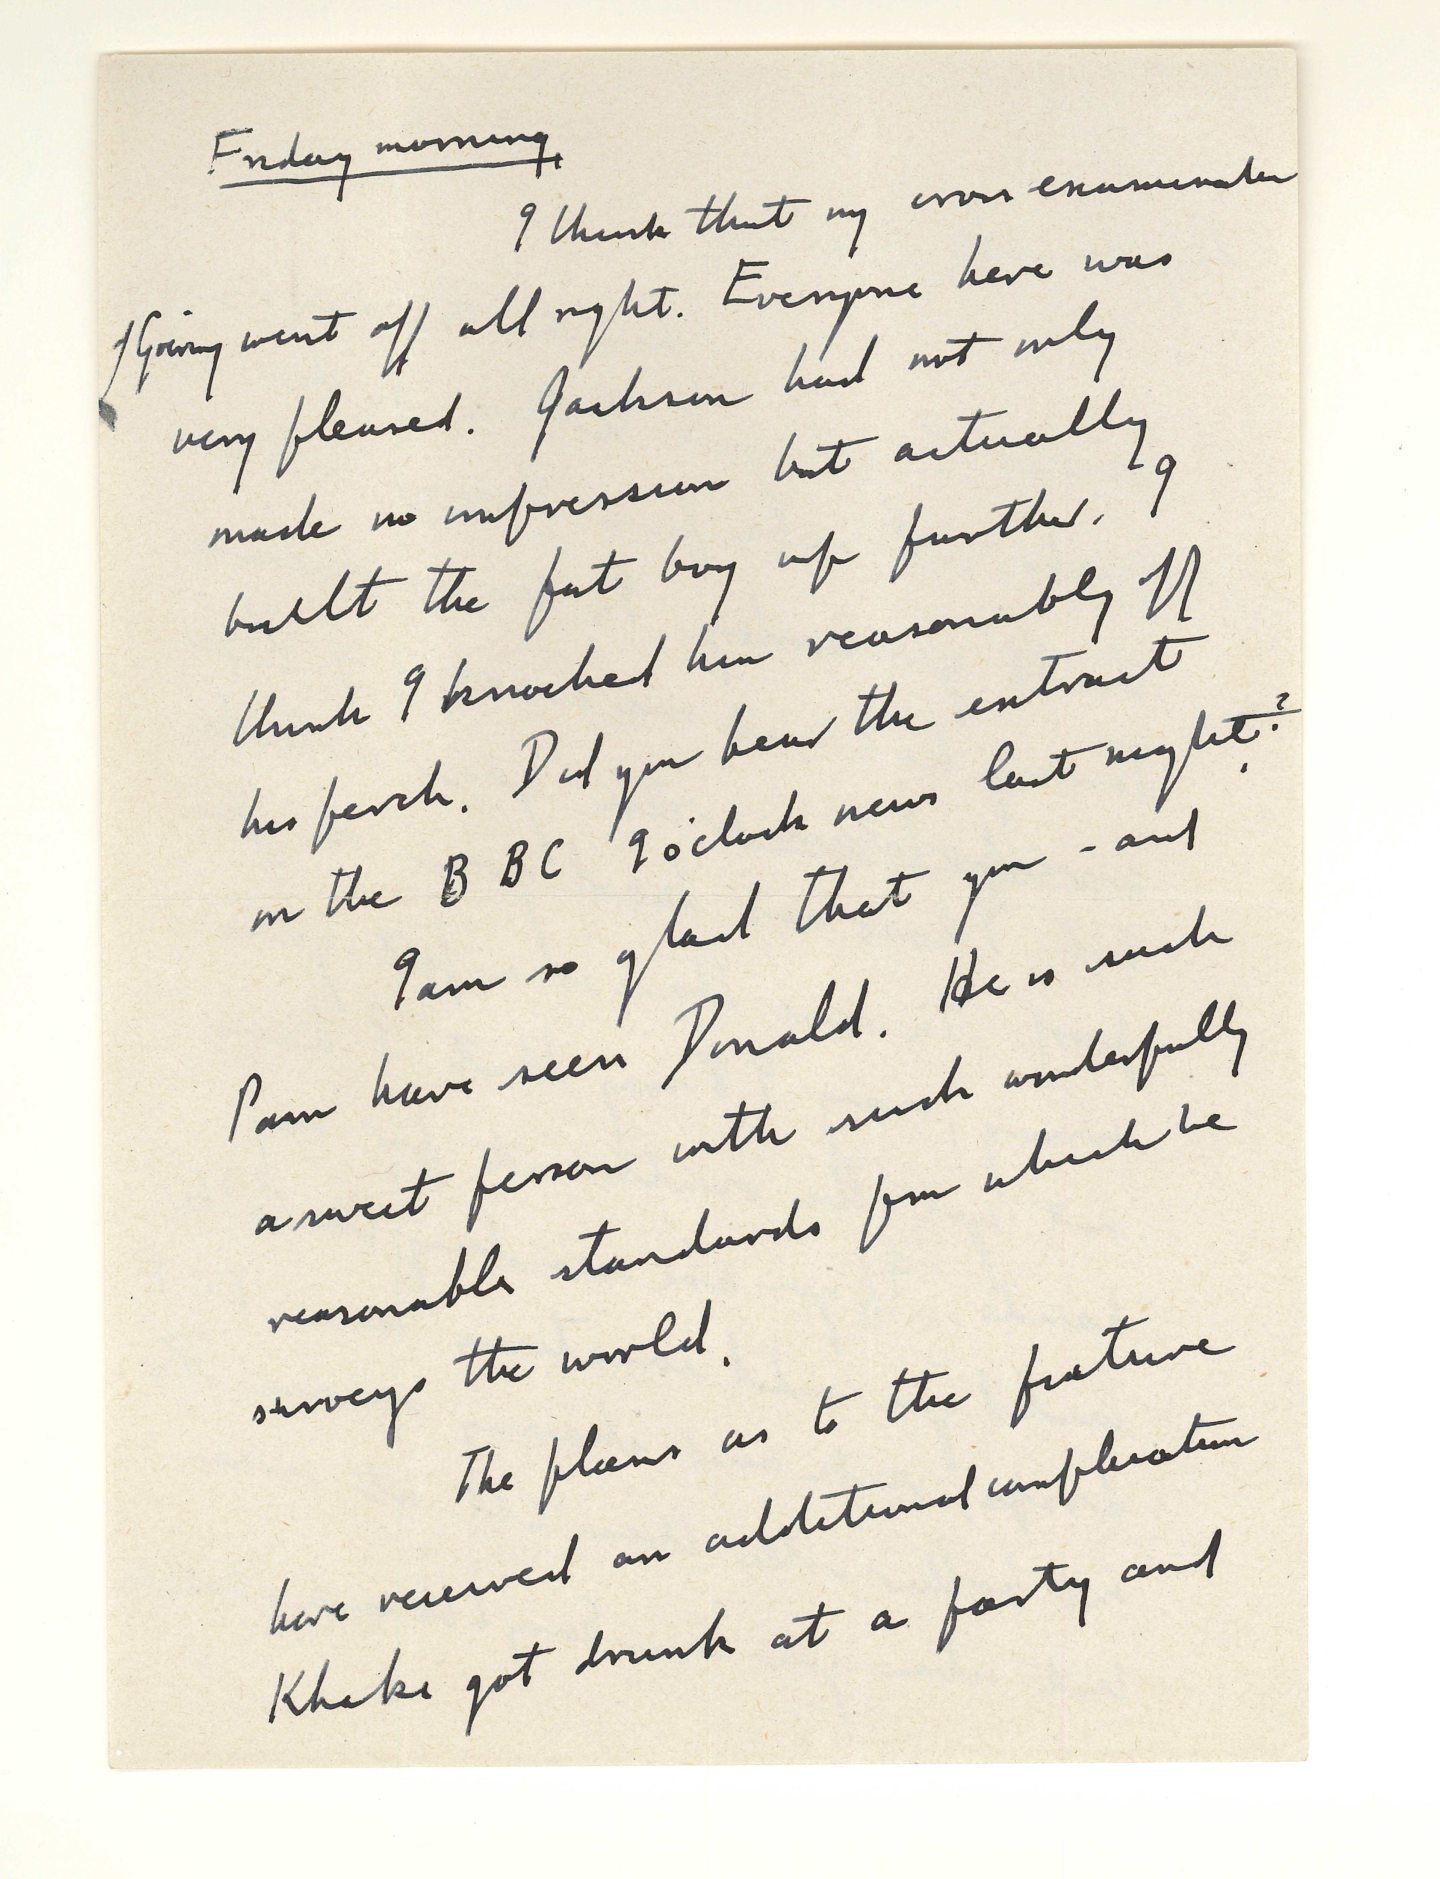 Friday morning,
I think that my cross examination
of Goering went off all right. Everyone here was
very pleased. Jackson had not only
made no impression but actually
built the fat boy up further. I
think I knocked him reasonably off
his perch. Did you hear the extract
on the BBC 9 o'clock news last night?
I am so glad that you - and
Pam have seen Donald. He is such
a sweet person with such wonderfully
reasonable standards from which he
surveys the world.
The plans as to the future
have received an additional complication
Khaki got drunk at a party and